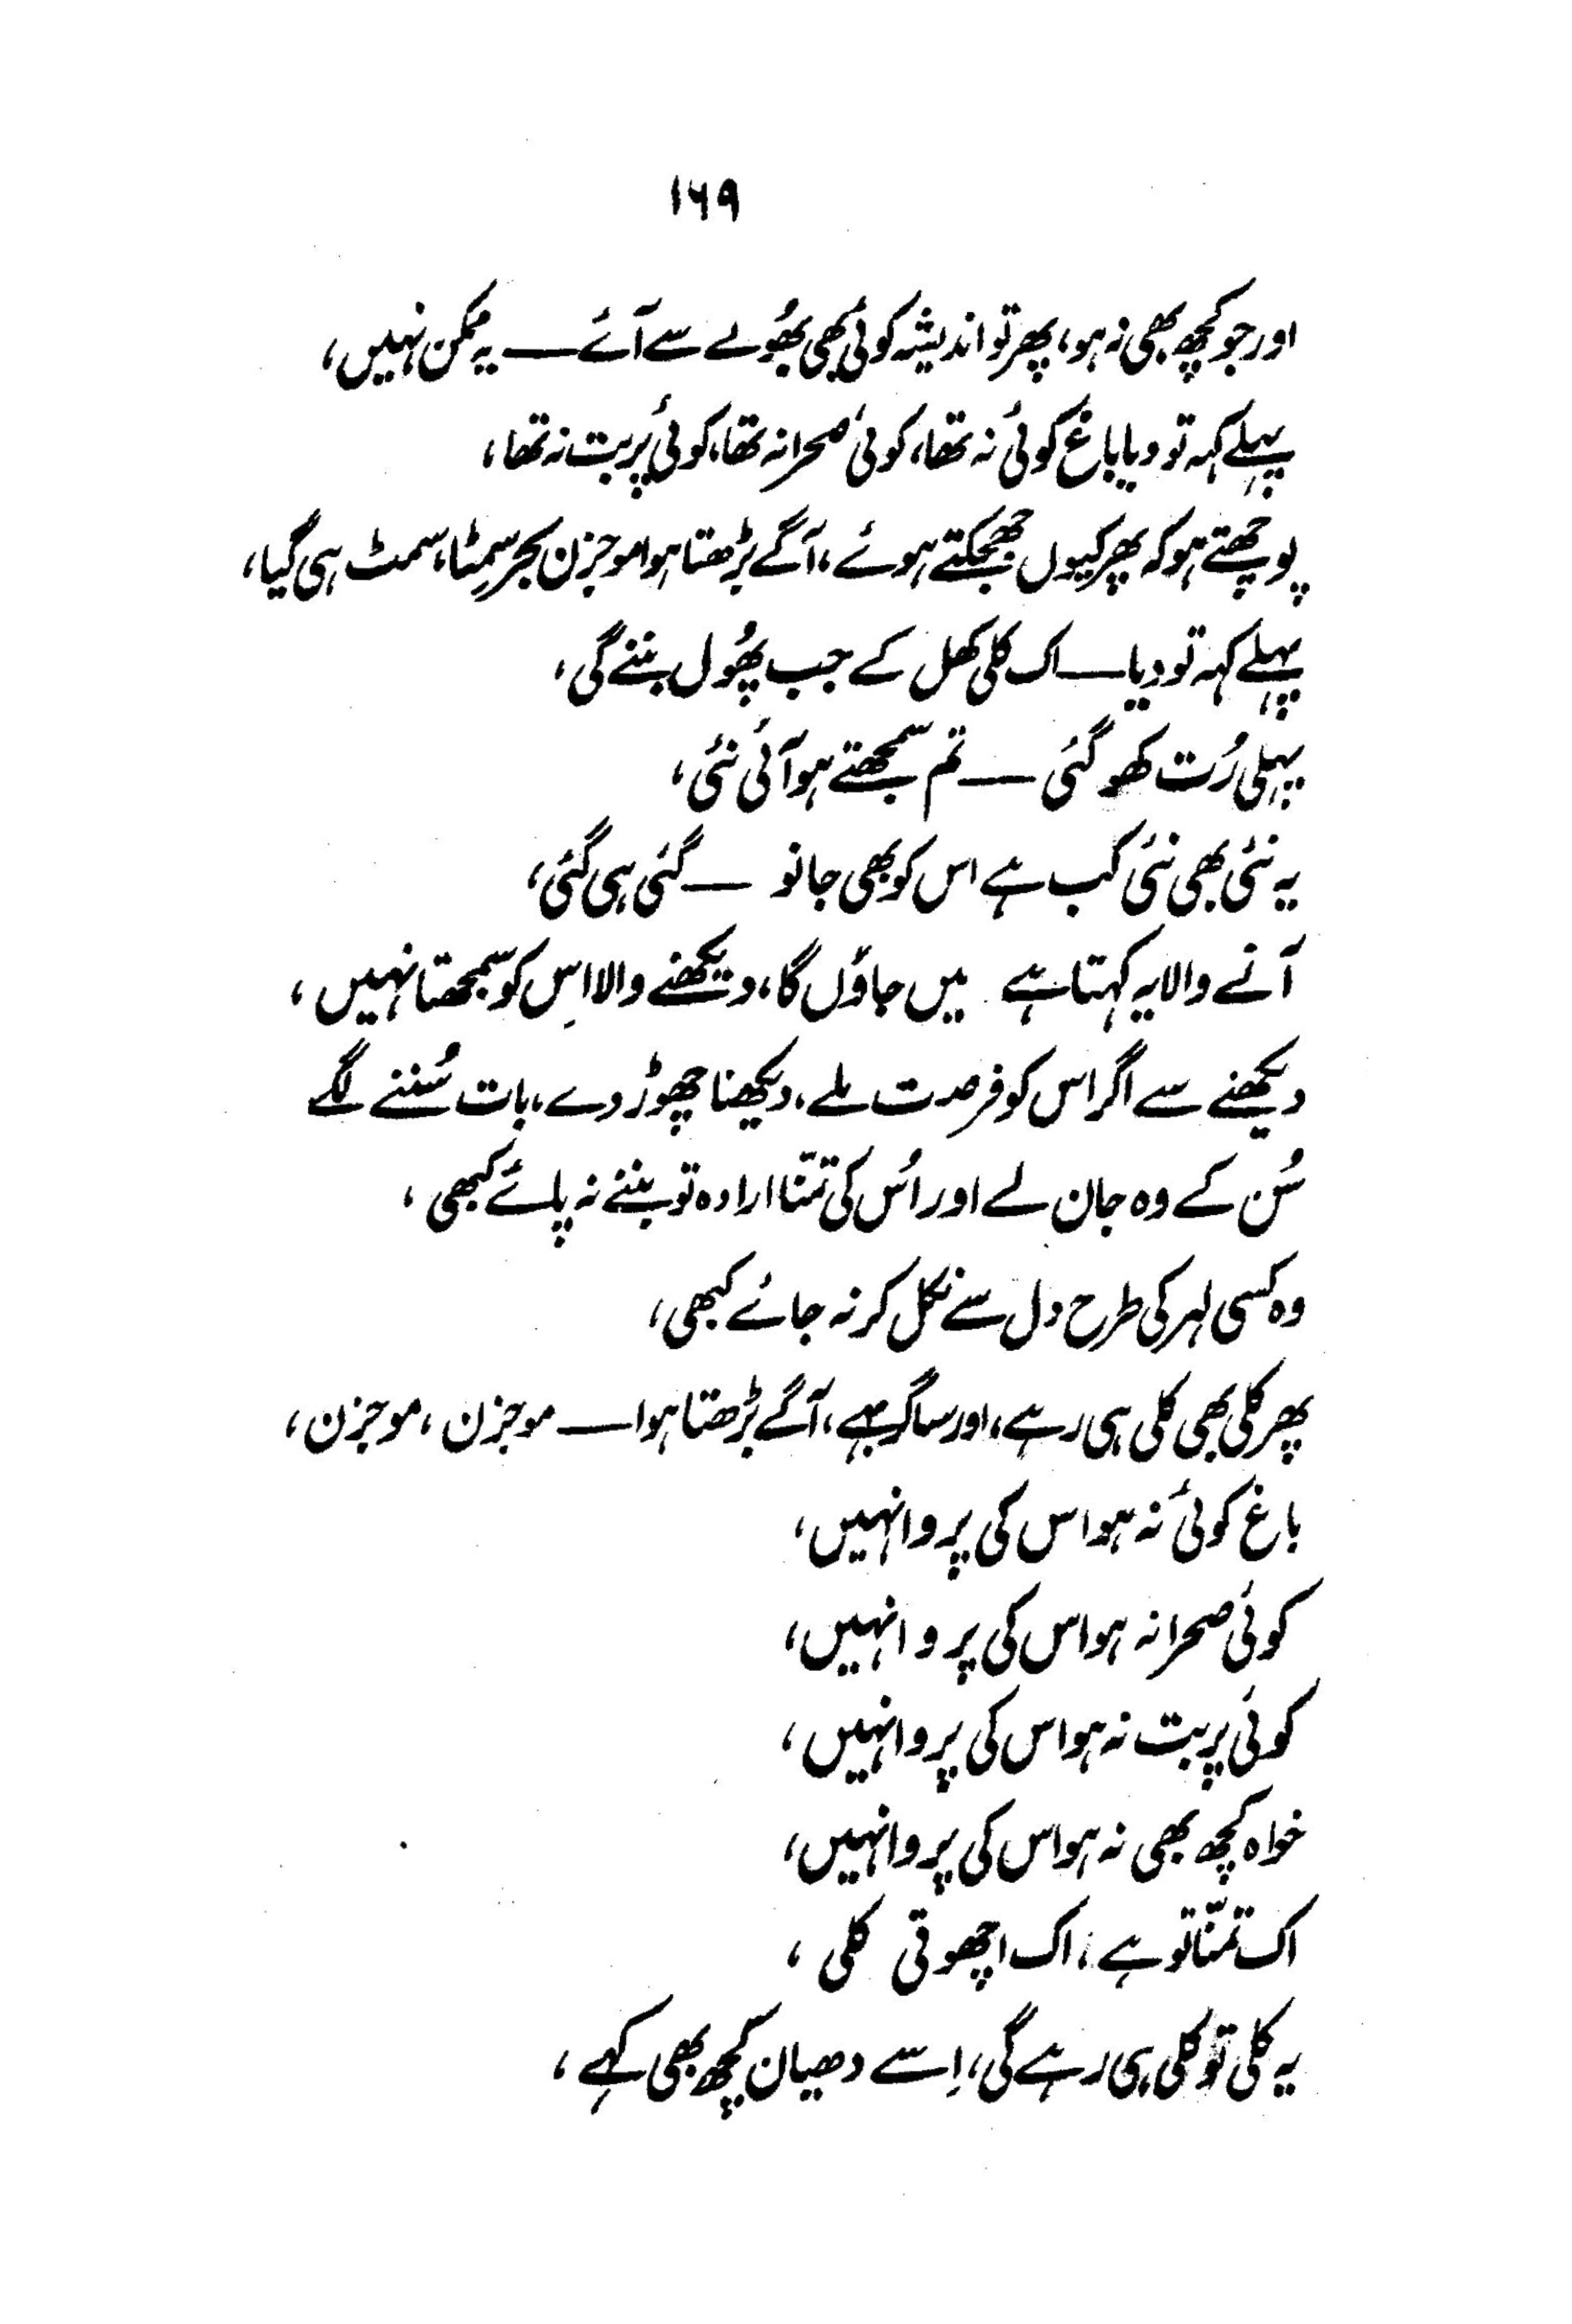 ۱۶۹
اور جو کچھ بھی نہ ہو، پھر تو اندیشہ کوئی بھی بھُولے سے آئے — یہ ممکن نہیں،
پہلے کہہ تو دیا باغ کوئی نہ تھا، کوئی صحرا نہ تھا، کوئی پربت نہ تھا،
پوچھتے ہو کہ پھر کیوں جھجکتے ہوئے، آگے بڑھتا ہوا موجزن بحر سِمٹا، سمٹ ہی گیا،
پہلے کہہ تو دیا — اک کلی کھل کے جب پھُول بننے لگی،
پہلی رُت کھو گئی — تم سمجھتے ہو آئی نئی،
یہ نئی بھی نئی کب ہے اس کو بھی جانو — گئی ہی گئی،
آنے والا یہ کہتا ہے میں جاؤں گا، دیکھنے والا اِس کو سمجھتا نہیں،
دیکھنے سے اگر اس کو فرصت ملے، دیکھنا چھوڑ دے، بات سُننے لگے
سُن کے وہ جان لے اور اُس کی تمنّا ارادہ تو بننے نہ پائے کبھی،
وہ کسی لہر کی طرح دل سے نکل کر نہ جائے کبھی،
پھر کلی بھی کلی ہی رہے، اور ساگر بہے، آگے بڑھتا ہوا — موجزن، موجزن،
باغ کوئی نہ ہو اس کی پروا نہیں،
کوئی صحرا نہ ہو اس کی پروا نہیں،
کوئی پربت نہ ہو اس کی پروا نہیں،
خواہ کچھ بھی نہ ہو اس کی پروا نہیں،
اک تمنّا تو ہے، اک اچھوتی کلی،
یہ کلی تو کلی ہی رہے گی، اِسے دھیان کچھ بھی کہے،